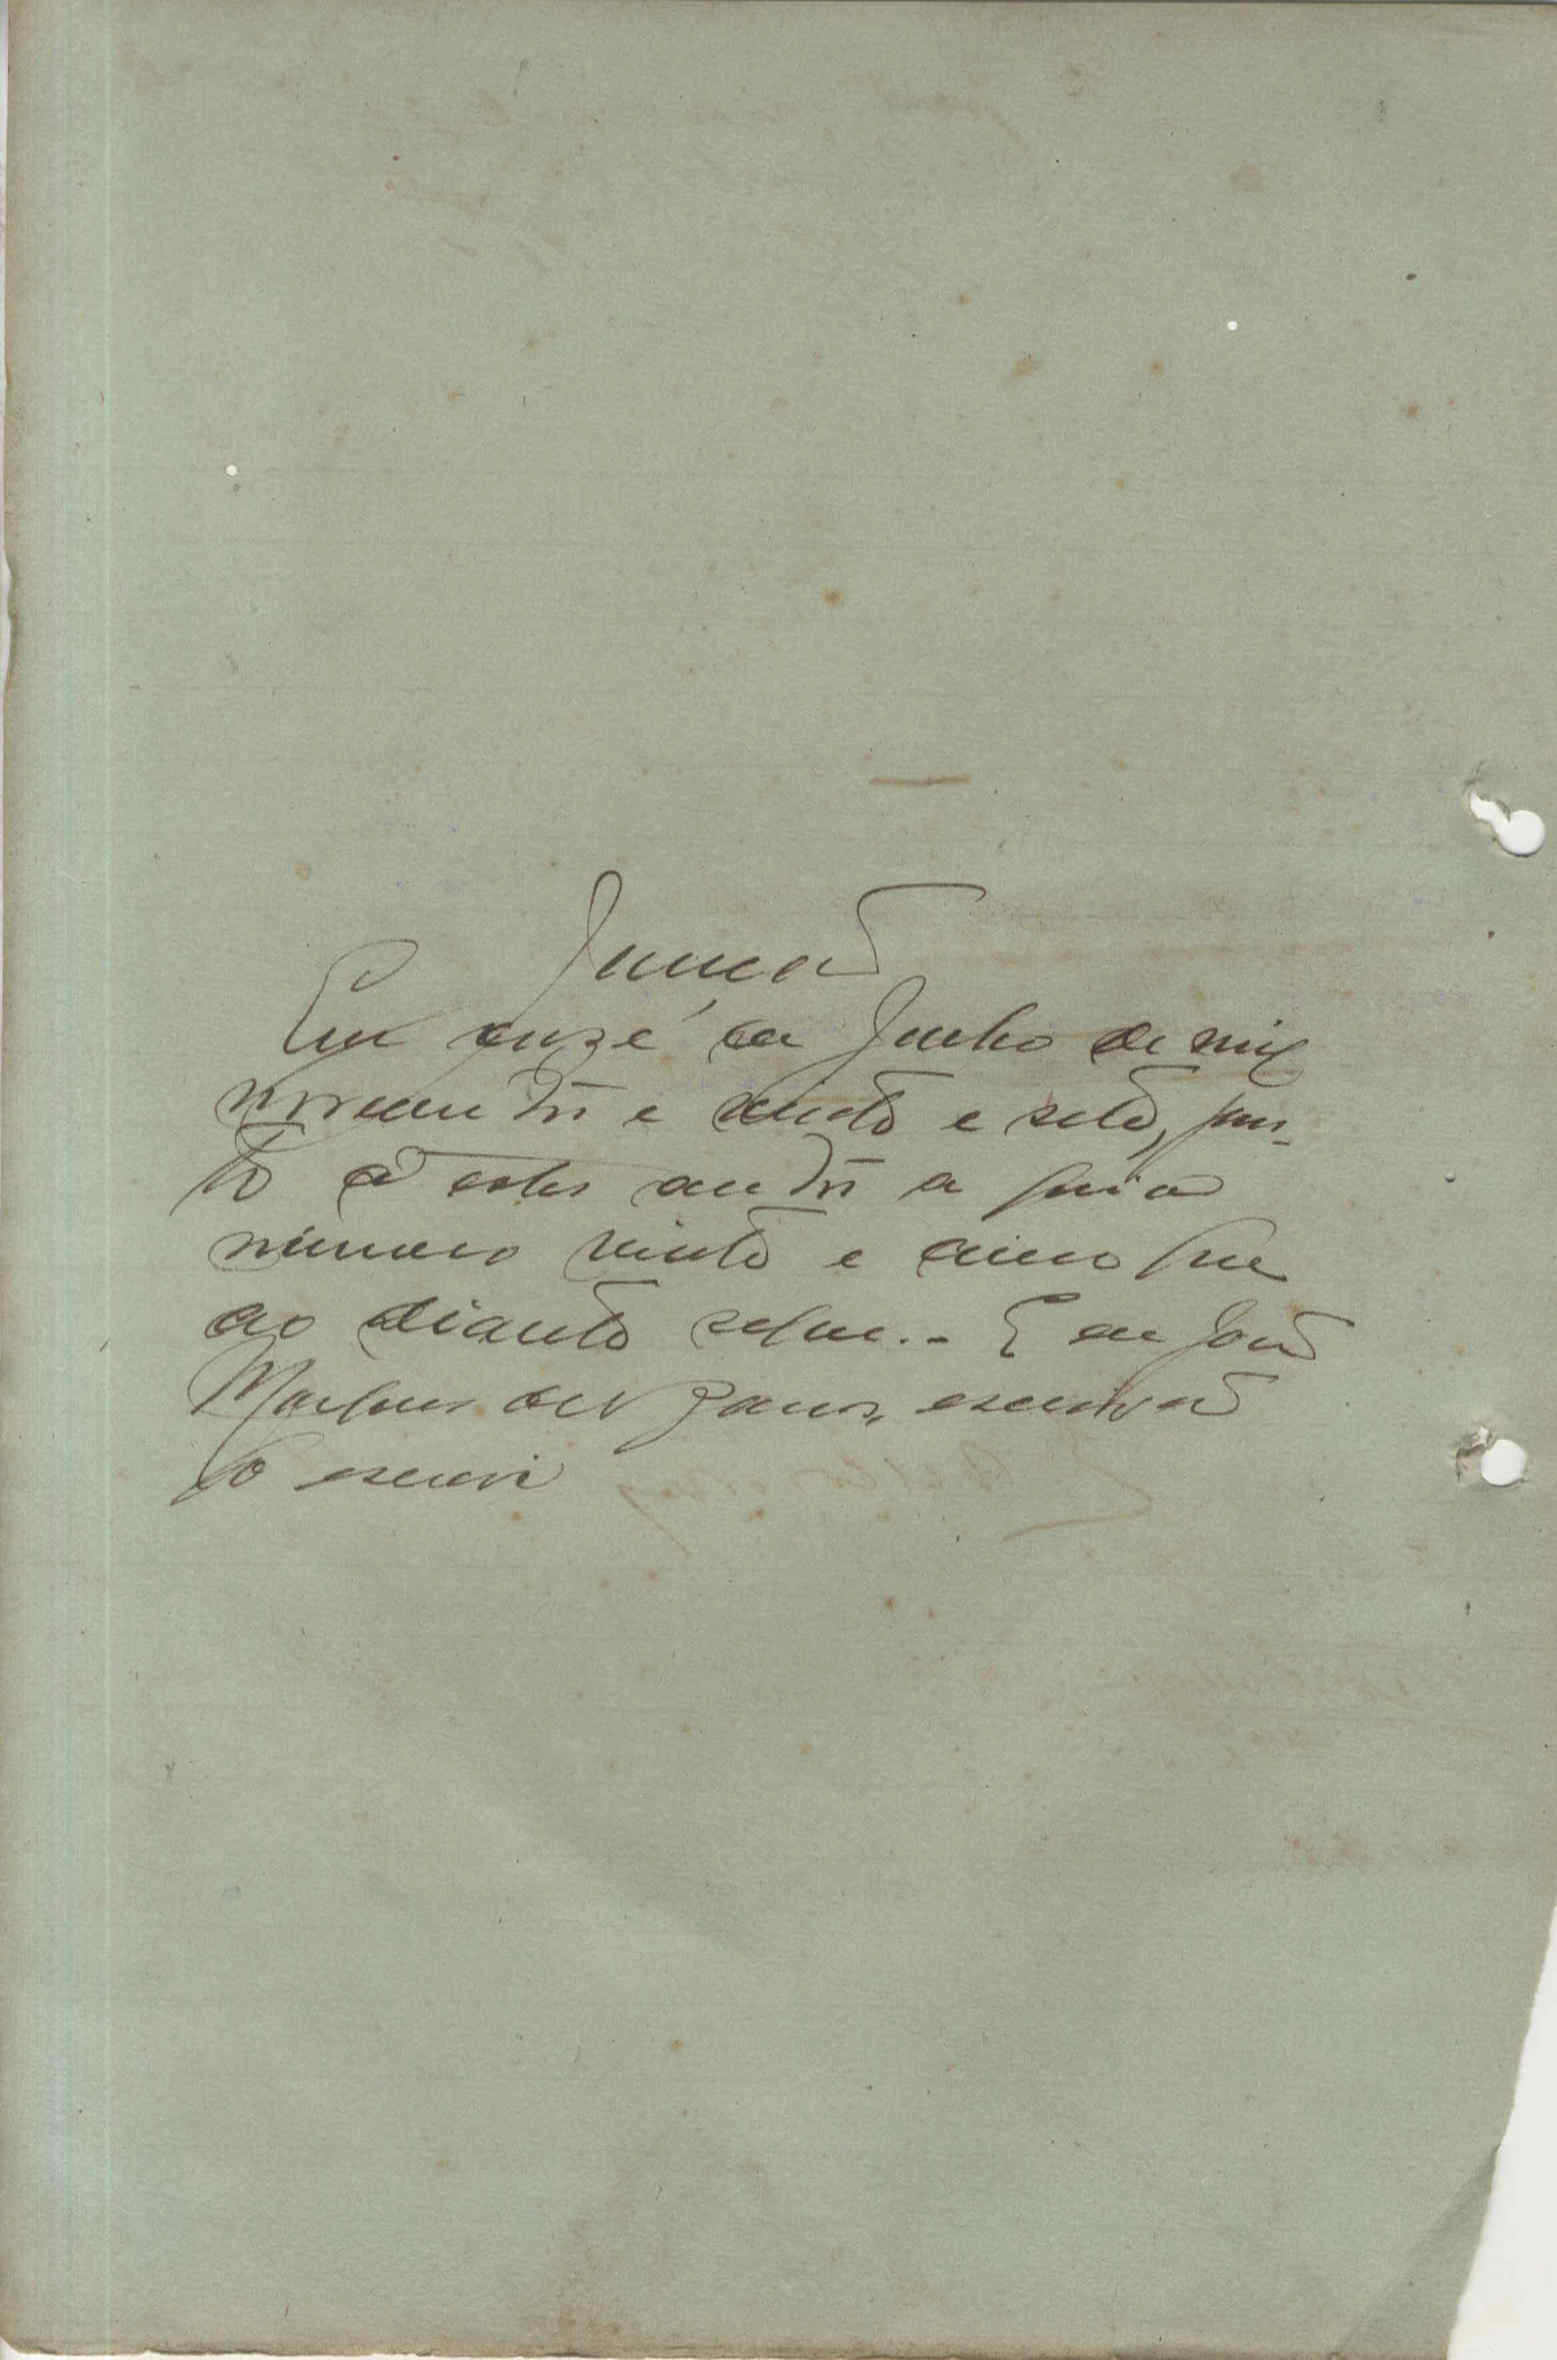 Juncad
Em onze de Junho de mil
novecentos e vinte e sete, jun-
to a estes autos a guia
numero vinte e cinco que
ao diante segue.- E eu João
Marques de escrivão
o escrevi